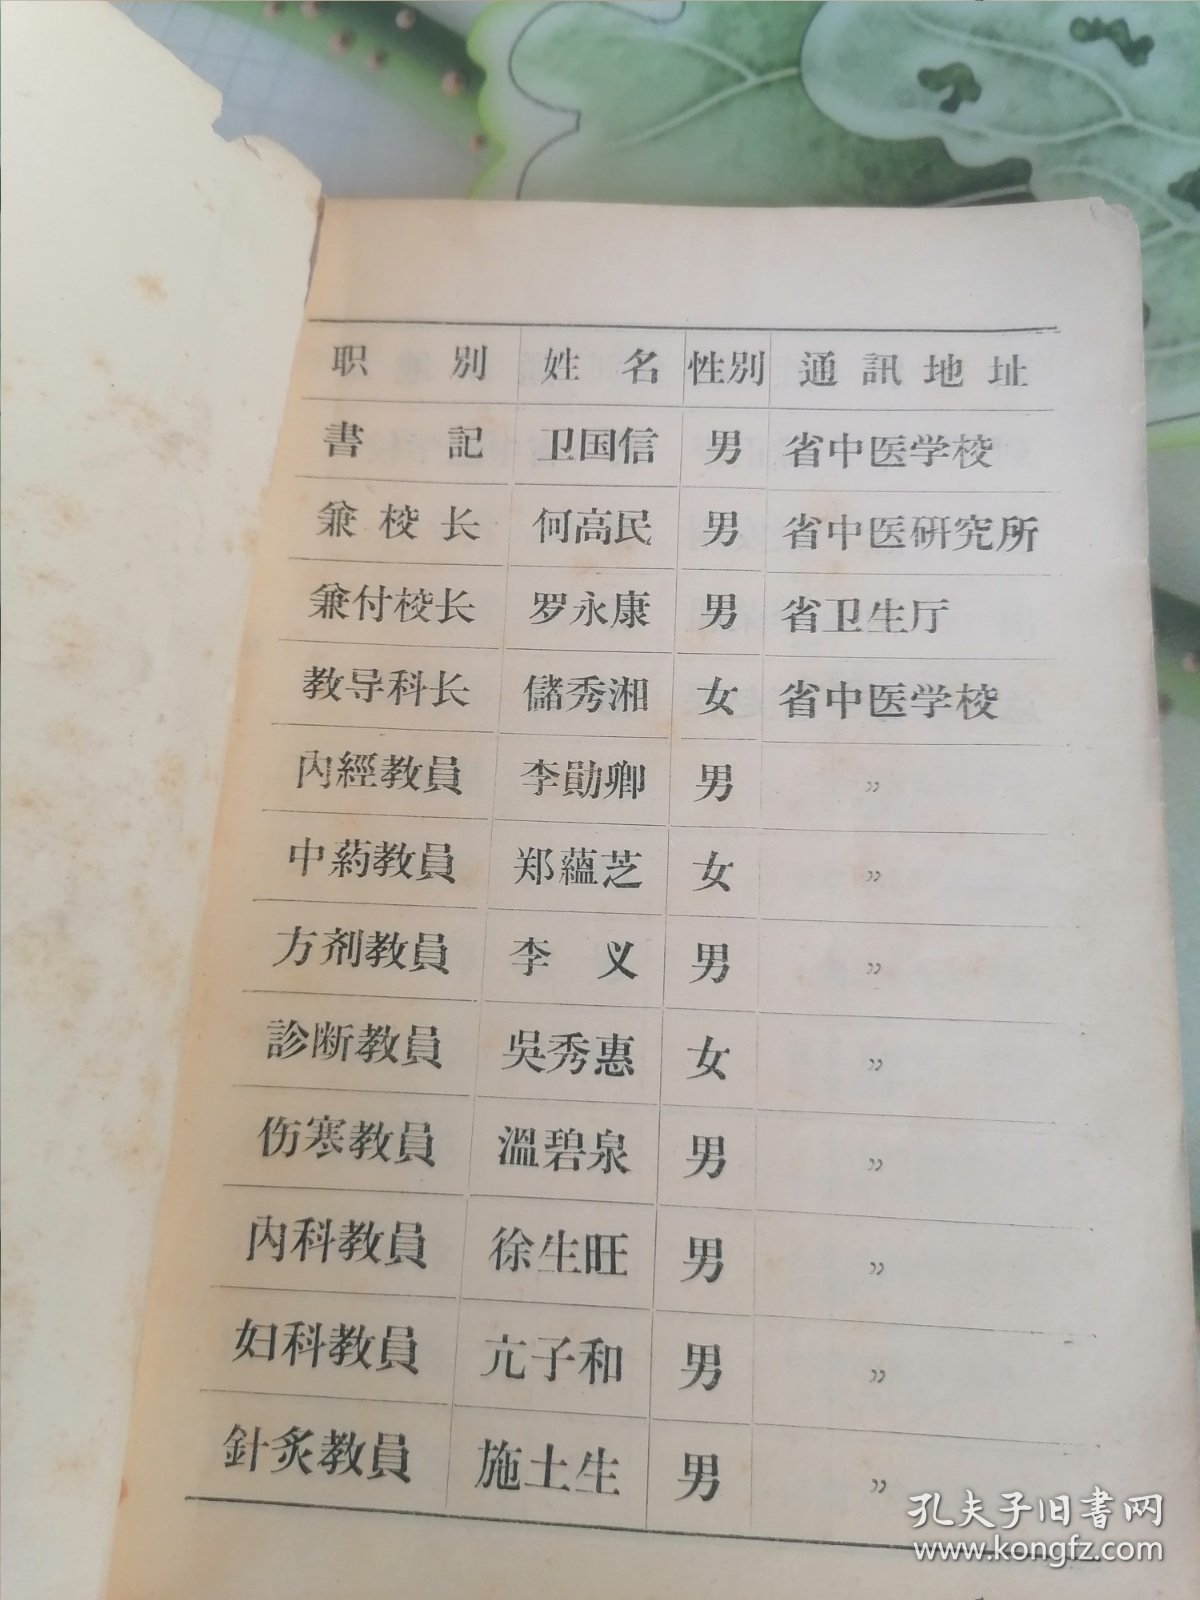 职别 姓名 性別 通訊地址
書記 卫国信 男 省中医学校
兼校长 何高民 男 省中医研究所
兼付校长 罗永康 男 省卫生厅
教导科长 儲秀湘 女 省中医学校
內經教員 李勛卿 男 〃
中葯教員 郑蘊芝 女 〃
方剂教員 李义 男 〃
診断教員 吳秀惠 女 〃
伤寒教員 溫碧泉 男 〃
內科教員 徐生旺 男 〃
妇科教員 亢子和 男 〃
針炙教員 施土生 男 〃
孔夫子旧书网
www.kongfz.com